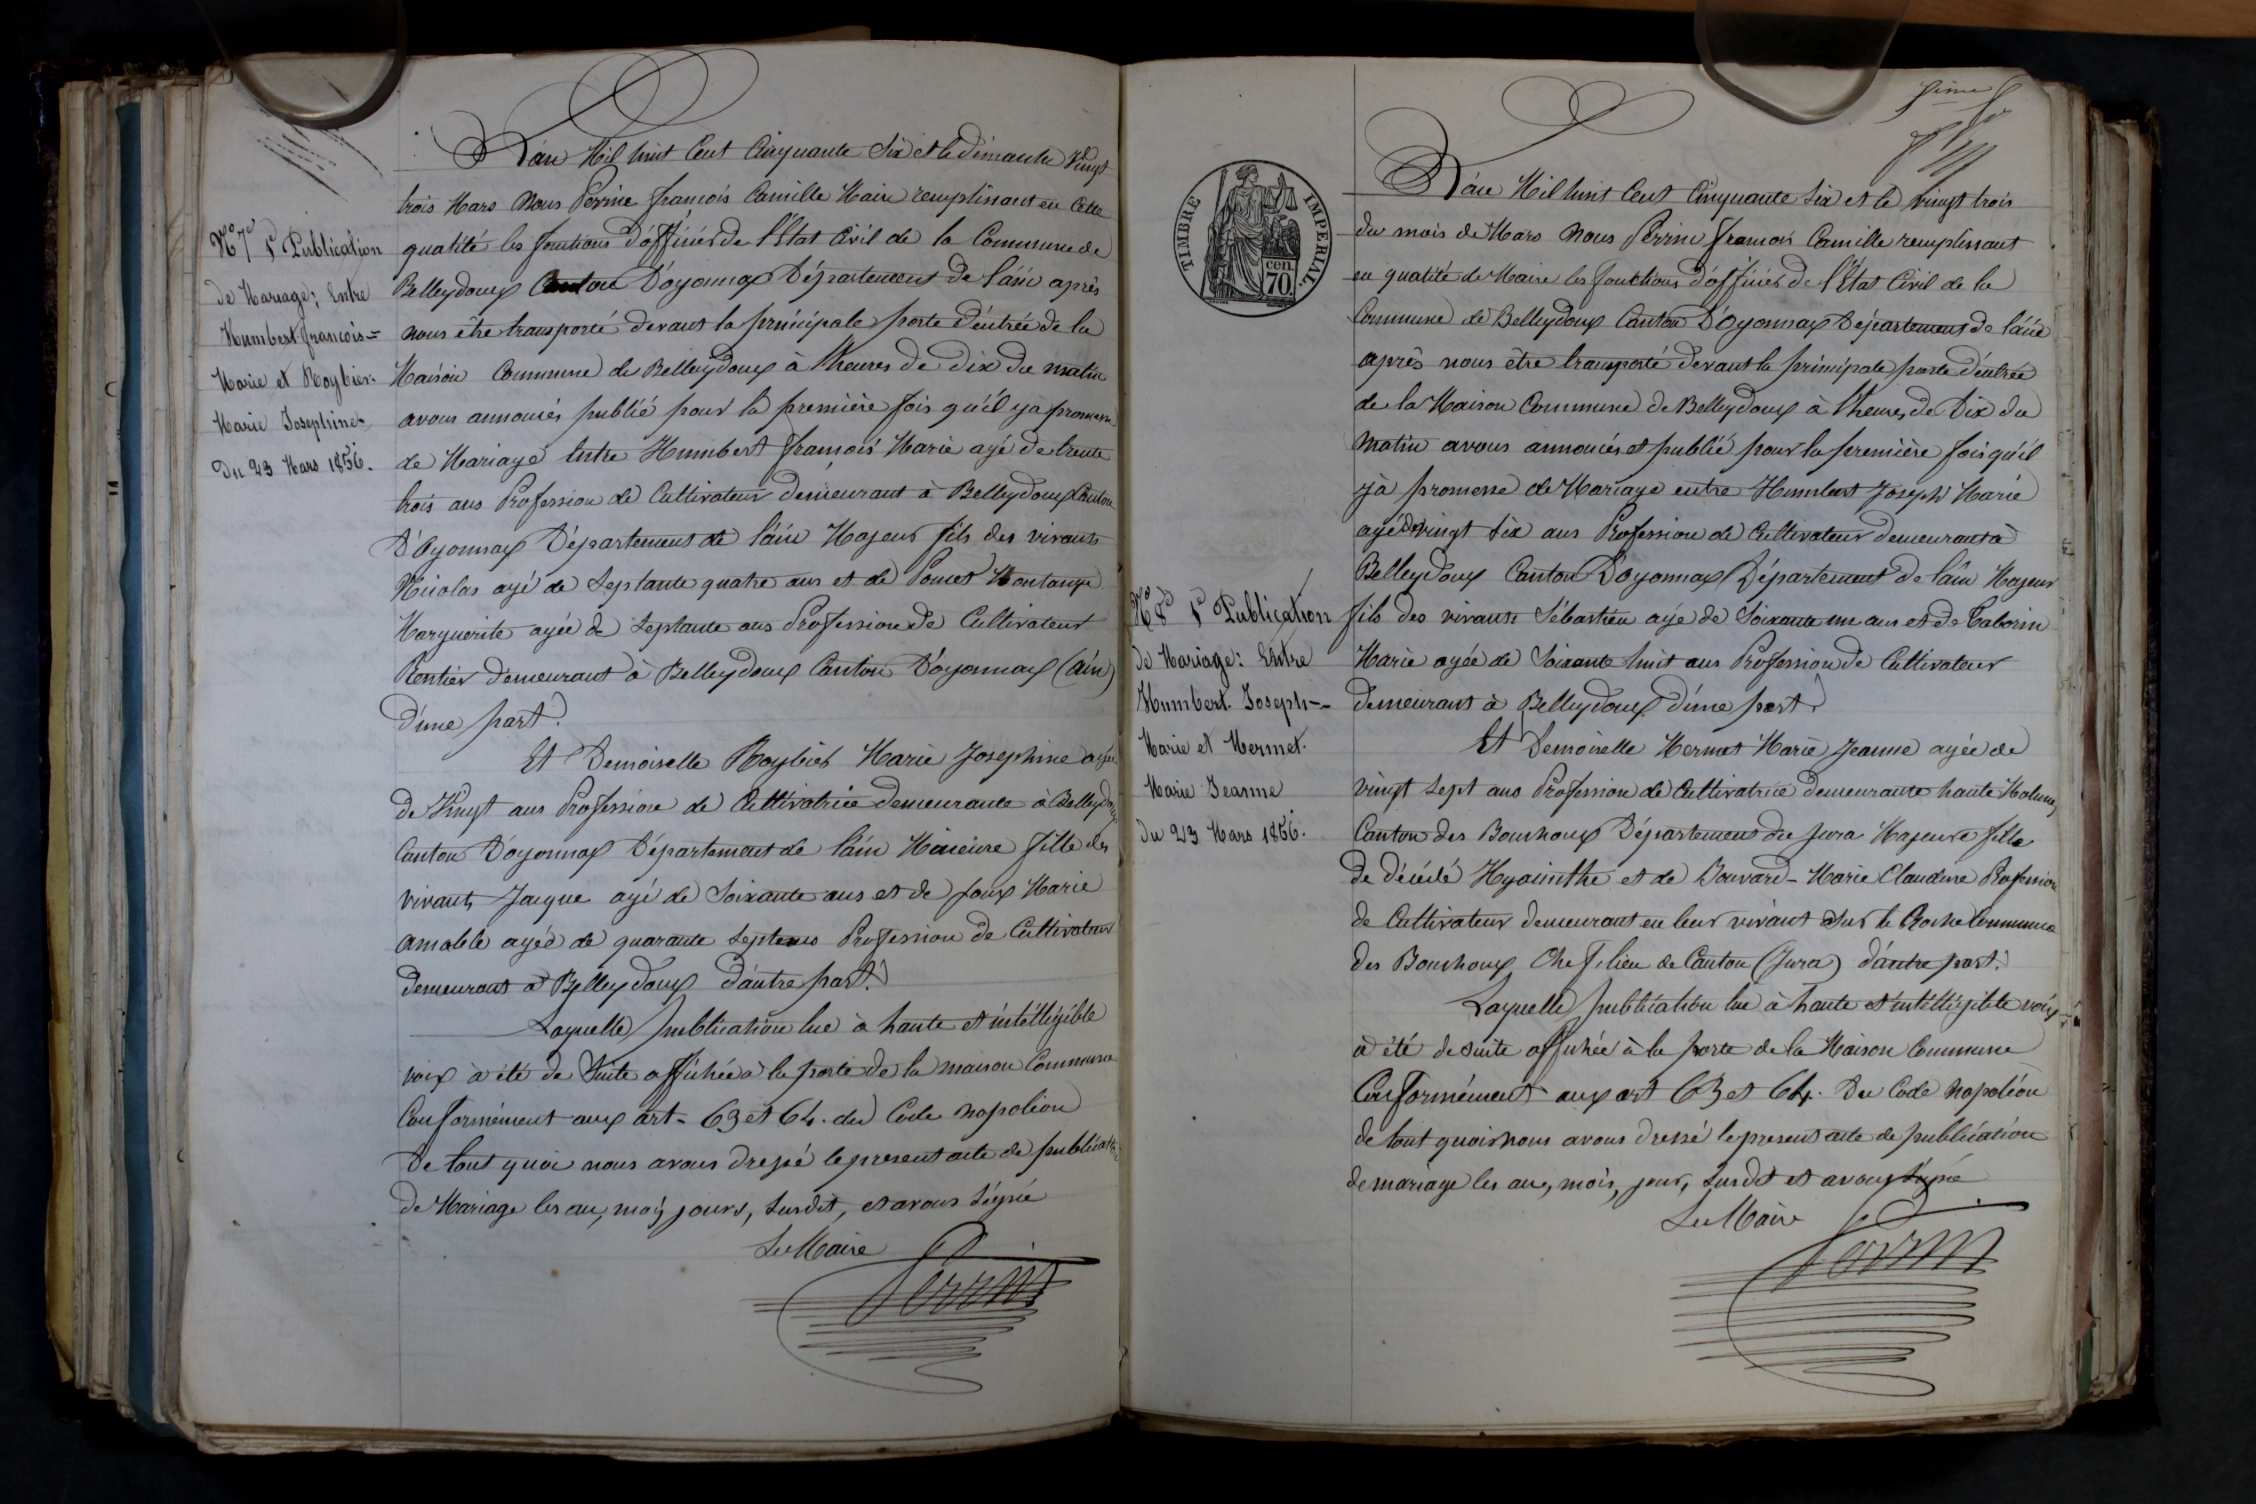 N° 7 1e Publication
de Mariage; Entre
Humbert françois=
Marie et Roybier-
Marie Josephine-
du 23 Mars 1856.
L'an Mil huit Cent Cinquante Six et le dimanche Vingt
trois Mars Nous Perrin françois Camille Maire remplissant en cette
qualité les fonctions d'officier de l'Etat Civil de la Commune de
Belleydoux Canton D'oyonnax Département de l'ain après
nous être transporté devant la principale porte d'entrée de la
Maison Commune de Belleydoux à l'heures de dix du matin
avons annoncés publié pour la première fois qu'il y à promesse
de Mariage Entre Humbert françois Marie agé de trente
trois ans Profession de Cultivateur demeurant à Belleydoux Canton
D'Oyonnax Département de l'ain Majeur fils des vivants
Nicolas agé de Septante quatre ans et de Poncet Montange
Marguerite agée de Septante ans Profession de Cultivateur
Rentier demeurant à Belleydoux Canton D'oyonnax (ain)
d'une part.
Et Demoiselle Roybier Marie Josephine agée
de Vingt ans Profession de Cultivatrice demeurante à Belleydoux
Canton D'oyonnax Département de l'ain Mineure fille des
vivants Jacque agé de Soixante ans et de Joux Marie
amable agée de quarante Sept ans Profession de Cultivateur
demeurant à Belleydoux d'autre part.
Laquelle publication lue à haute et intélligible
voix à été de Suite affichée à la porte de la maison Commune
Conformément aux art- 63 et 64. du Code napoléon
De tout quoi nous avons dressé le present acte de publication
de Mariage les an, mois, jours, Susdit, et avons Signé
Le Maire
Perrin
TIMBRE IMPERIAL.
cen.
70
N° 8 1e Publication
de Mariage: Entre
Humbert Joseph--
Marie et Mermet.
Marie Jeanne
du 23 Mars 1856.
L'an Mil huit Cent Cinquante Six et le vingt trois
du mois de Mars Nous Perrin françois Camille remplissant
en qualité de Maire les fonctions d'officier de l'Etat Civil de la
Commune de Belleydoux Canton D'Oyonnax Département de l'ain
après nous être transporté devant la principale porte d'entrée
de la Maison Commune de Belleydoux à l'heures de Dix du
Matin avons annoncés et publié pour la première fois qu'il
y à promesse de Mariage entre Humbert Joseph Marie
agé de vingt Six ans Profession de Cultivateur demeurant à
Belleydoux Canton D'Oyonnax Département de l'ain Majeur
fils des vivants Sébastien agé de Soixante un ans et de Taborin
Marie agée de Soixante huit ans Profession de Cultivateur
demeurant à Belleydoux d'une part.
Et Demoiselle Mermet Marie Jeanne agée de
vingt Sept ans Profession de Cultivatrice demeurante haute Molune,
Canton des Bouchoux Département du Jura Majeure fille
de décédé Hyacinthe et de Bouvard- Marie Claudine Profession
de Cultivateur demeurant en leur vivant Sur le Roche Commune
des Bouchoux Chef lieu de Canton (Jura) d'autre part.
Laquelle publication lue à haute et intélligible voix
à été de suite affichée à la porte de la Maison Commune
Conformément aux art 63 et 64. Du Code Napoléon
de tout quoi nous avons dressé le present acte de publication
de mariage les an, mois, jour, Susdit et avons Signé
Le Maire
Perrin